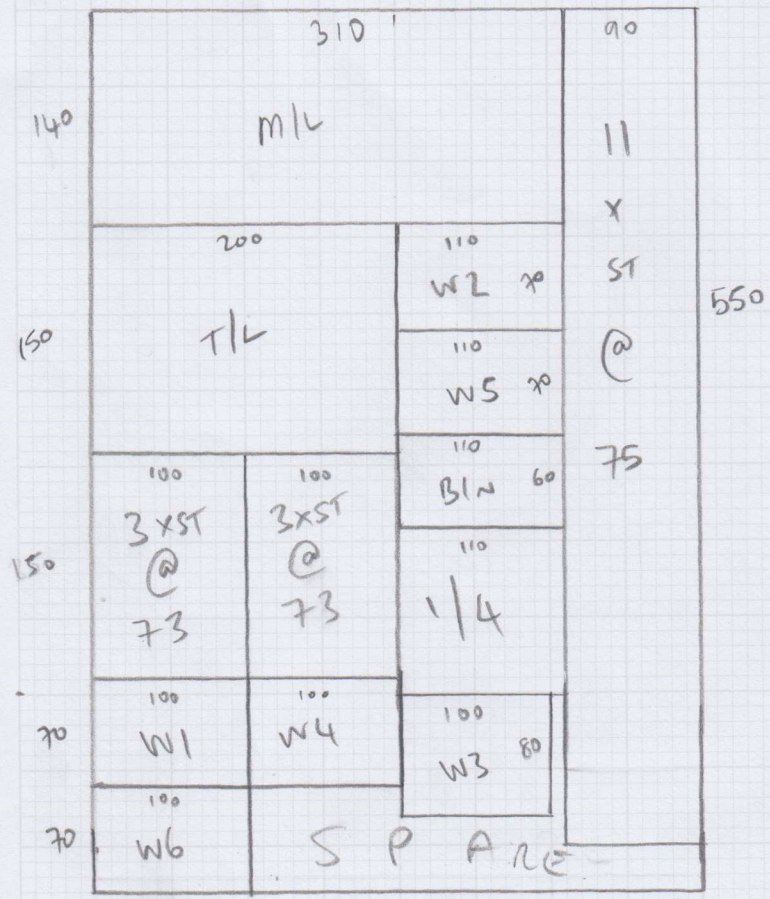 310
90
140
M/L
11
x
ST
@
75
550
200
T/L
150
110
W2 70
110
W5 70
110
BIN 60
100
3 x ST
@
73
100
3 x ST
@
73
150
110
1/4
100
W1
100
W4
70
100
W3 80
100
W6
70
SPARE